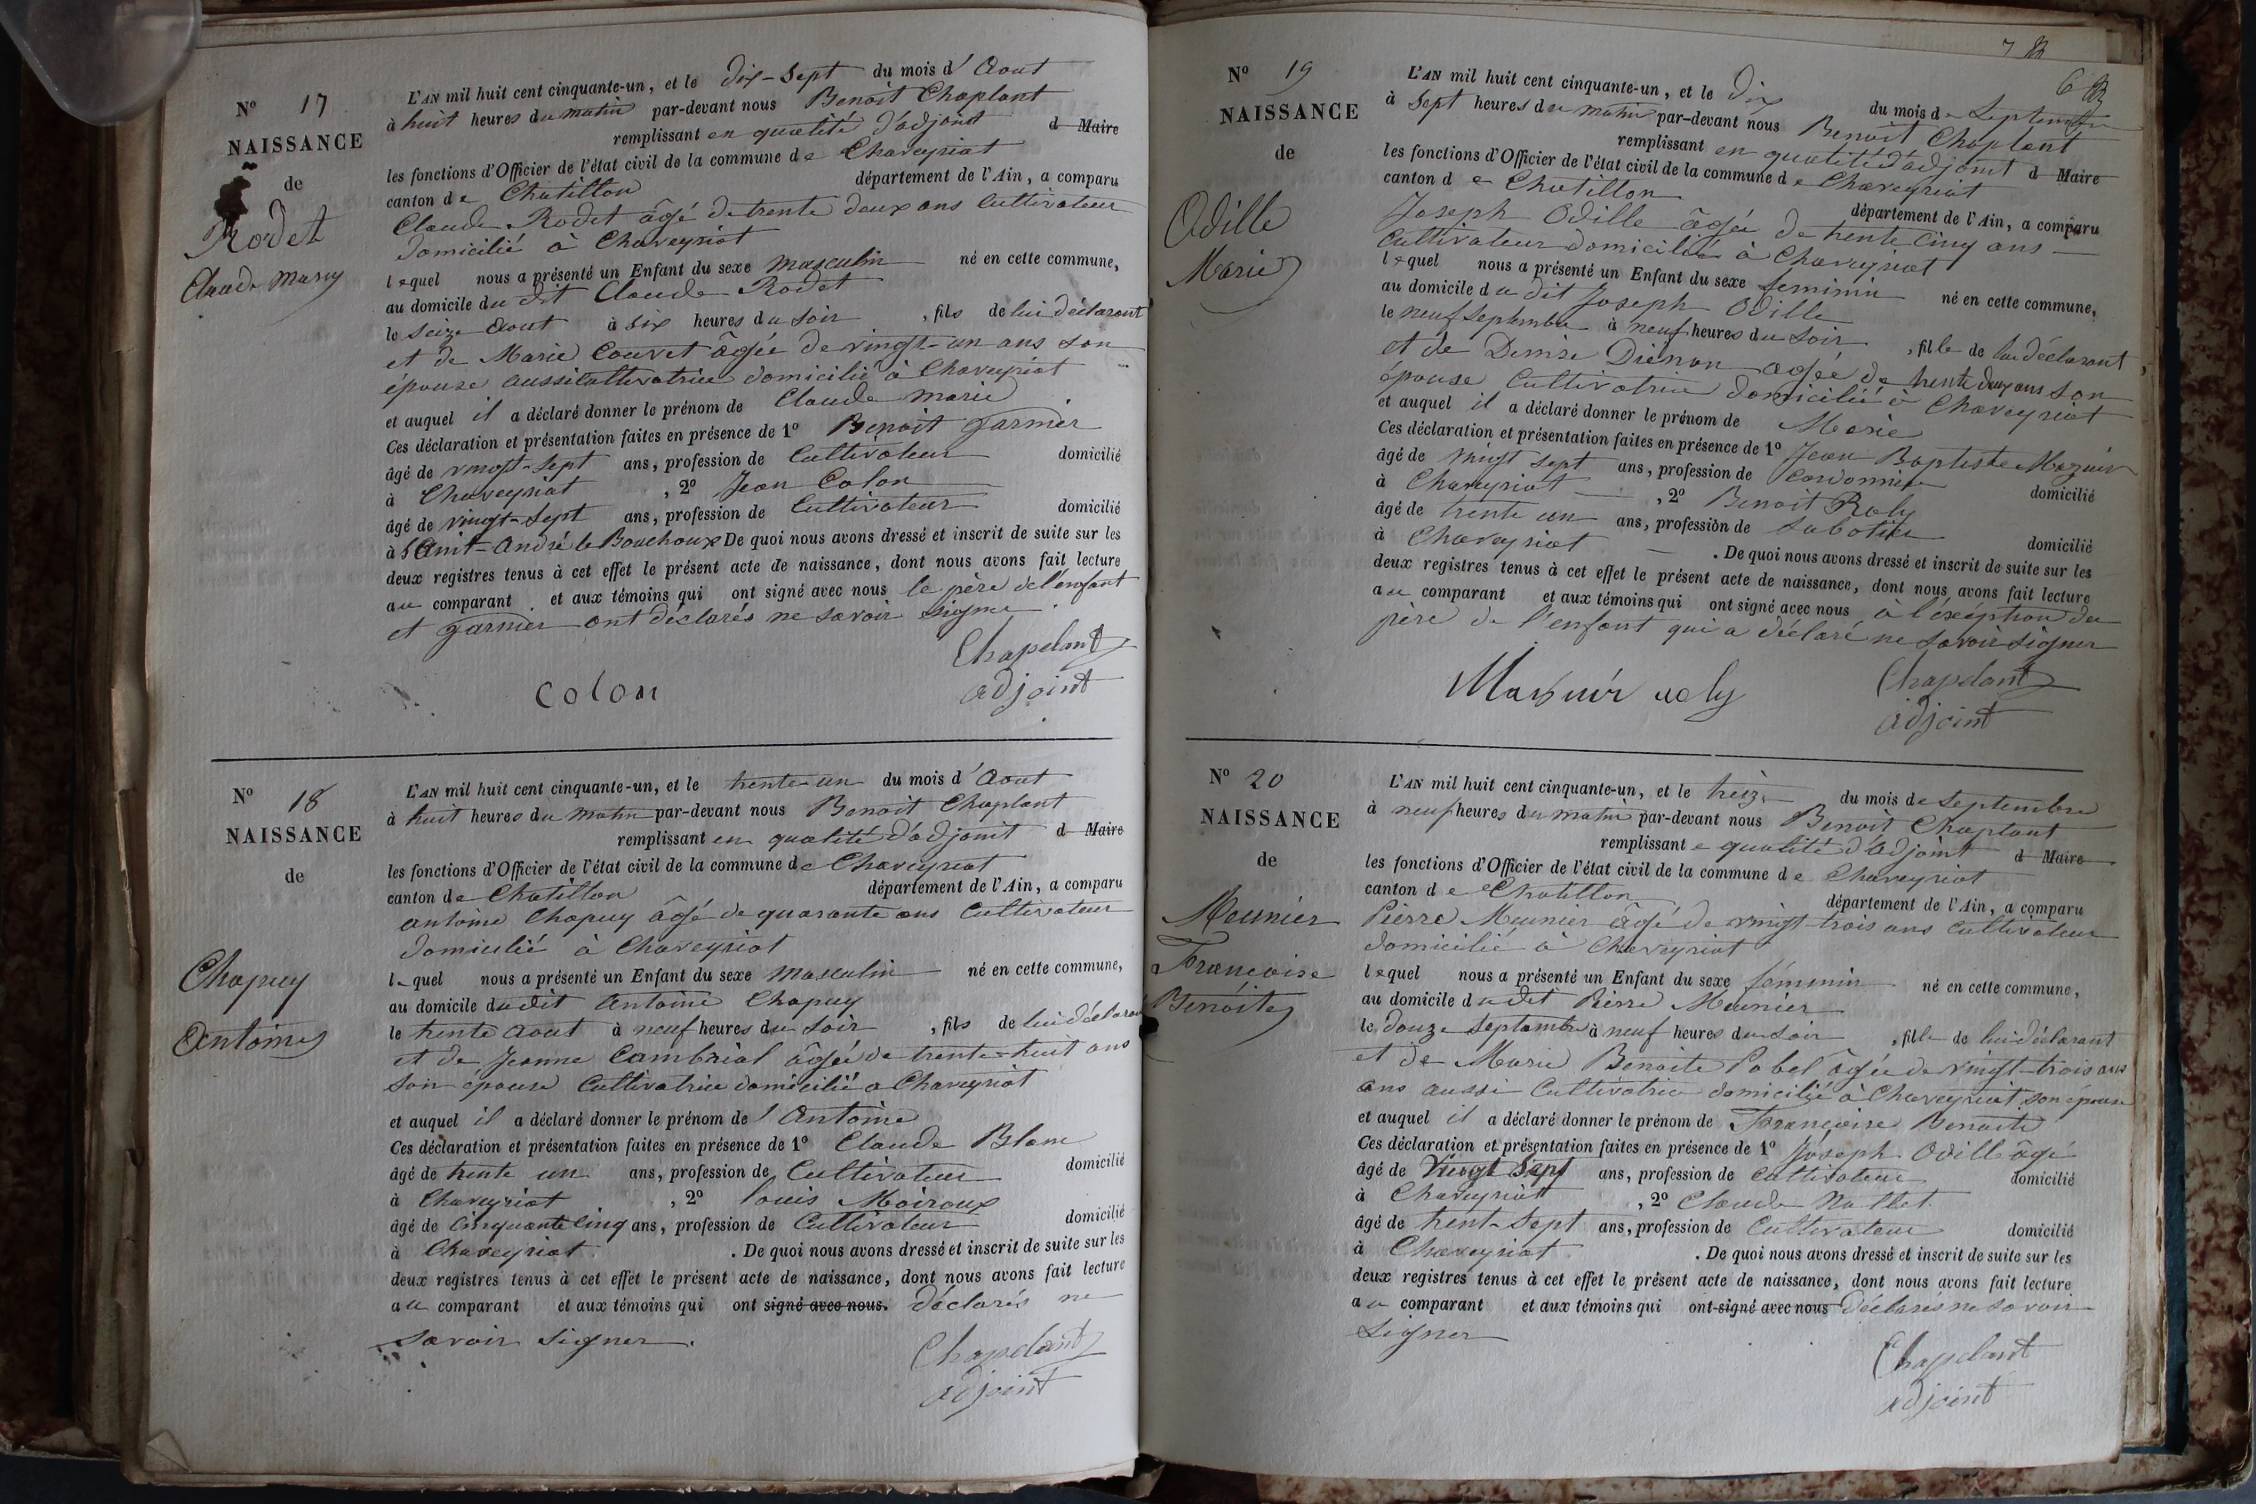 N° 17
NAISSANCE
de
Rodet
Claude Marie
L'AN mil huit cent cinquante-un, et le dix-sept du mois d'Aout
à huit heures du matin par-devant nous Benoit Chaplant
remplissant en qualité d'adjoint d Maire
les fonctions d'Officier de l'état civil de la commune de Chaveyriat
canton de Chatillon département de l'Ain, a comparu
Claude Rodet âgé de trente deux ans cultivateur
domicilié à Chaveyriat
lequel nous a présenté un Enfant du sexe masculin né en cette commune,
au domicile du dit Claude Rodet
le seize Aout à six heures du soir, fils de lui déclarant
et de Marie Couvet âgée de vingt-un ans son
épouse aussi cultivatrice domicilié à Chaveyriat
et auquel il a déclaré donner le prénom de Claude Marie
Ces déclaration et présentation faites en présence de 1° Benoit Garnier
âgé de vingt-sept ans, profession de Cultivateur domicilié
à Chaveyriat, 2° Jean Colon
âgé de vingt-sept ans, profession de Cultivateur domicilié
à Sanit-André le Bouchoux De quoi nous avons dressé et inscrit de suite sur les
deux registres tenus à cet effet le présent acte de naissance, dont nous avons fait lecture
au comparant. et aux témoins qui ont signé avec nous le père de l'enfant
et Garnier ont déclarés ne savoir signer.
Chapelant
adjoint
Colon
N° 18
NAISSANCE
de
Chapuy
Antoine
L'AN mil huit cent cinquante-un, et le trente-un du mois d'Aout
à huit heures du matin par-devant nous Benoit Chaplant
remplissant en qualité d'adjonit d Maire
les fonctions d'Officier de l'état civil de la commune de Chaveyriat
canton de Chatillon département de l'Ain, a comparu
antoine Chapuy âgé de quarante ans Cultivateur
domicilié à Chaveyriat
lequel nous a présenté un Enfant du sexe masculin né en cette commune,
au domicile du dit Antoine Chapuy
le trente Aout à neuf heures du soir, fils de lui déclarant
et de Jeanne Cambrial âgée de trente-huit ans
son épouse Cultivatrice domicilié a Chaveyriat
et auquel il a déclaré donner le prénom de Antoine
Ces déclaration et présentation faites en présence de 1° Claude Blanc
âgé de trente un ans, profession de Cultivateur domicilié
à Chaveyriat, 2° louis Moiroux
âgé de Cinquante cinq ans, profession de Cultivateur domicilié
à Chaveyriat. De quoi nous avons dressé et inscrit de suite sur les
deux registres tenus à cet effet le présent acte de naissance, dont nous avons fait lecture
au comparant et aux témoins qui ont signé avec nous. déclarés ne
savoir signer.
Chapelant
adjoint
7
6
N° 19
NAISSANCE
de
Odille
Marie
L'AN mil huit cent cinquante-un, et le dix du mois de Septembre
à sept heures du matin par-devant nous Benoit Chaplant
remplissant en qualité d'adjonit d Maire
les fonctions d'Officier de l'état civil de la commune de Chaveyriat
canton de Chatillon département de l'Ain, a comparu
Joseph Odille âgée de trente cinq ans
Cultivateur domicilié à Chaveyriat
lequel nous a présenté un Enfant du sexe feminin né en cette commune,
au domicile du dit Joseph Odille
le neuf Septembre à neuf heures du soir, fille de lui déclarant,
et de Denise Diénon agée de trente deux ans son
épouse Cultivatrice domicilié à Chaveyriat
et auquel il a déclaré donner le prénom de Marie
Ces déclaration et présentation faites en présence de 1° Jean Baptiste Mazuir
âgé de vingt sept ans, profession de Cordonnier domicilié
à Chaveyriat, 2° Benoit Roly
âgé de trente un ans, profession de Sabotier domicilié
à Chaveyriat. De quoi nous avons dressé et inscrit de suite sur les
deux registres tenus à cet effet le présent acte de naissance, dont nous avons fait lecture
au comparant et aux témoins qui ont signé avec nous à l'éxéption du
père de l'enfant qui a déclaré ne savoir signer
Chapelant
adjoint
N° 20
NAISSANCE
de
Meunier
Francoise
Benoite
L'AN mil huit cent cinquante-un, et le treize du mois de Septembre
à neuf heures du matin par-devant nous Benoit Chaplant
remplissant e qualité d'adjoint d Maire
les fonctions d'Officier de l'état civil de la commune de Chaveyriat
canton de Chatillon département de l'Ain, a comparu
Pierre Meunier âgé de vingt-trois ans cultivateur
domicilié à Chaveyriat
lequel nous a présenté un Enfant du sexe féminin né en cette commune,
au domicile du dit Pierre Meunier
le douze Septembre à neuf heures du soir, fille de lui déclarant
et de Marie Benoite Pobel âgée de vingt-trois ans
ans aussi Cultivatrice domicilié à Chaveyriat son épouse
et auquel il a déclaré donner le prénom de Françoise Benoite
Ces déclaration et présentation faites en présence de 1° Joseph Odille âgé
âgé de Vingt Sept ans, profession de cultivateur domicilié
à Chaveyriat, 2° Claude Nallet
âgé de trent-sept ans, profession de Cultivateur domicilié
à Chaveyriat. De quoi nous avons dressé et inscrit de suite sur les
deux registres tenus à cet effet le présent acte de naissance, dont nous avons fait lecture
au comparant et aux témoins qui ont signé avec nous déclarés ne savoir
Signer
Chapelant
adjoint